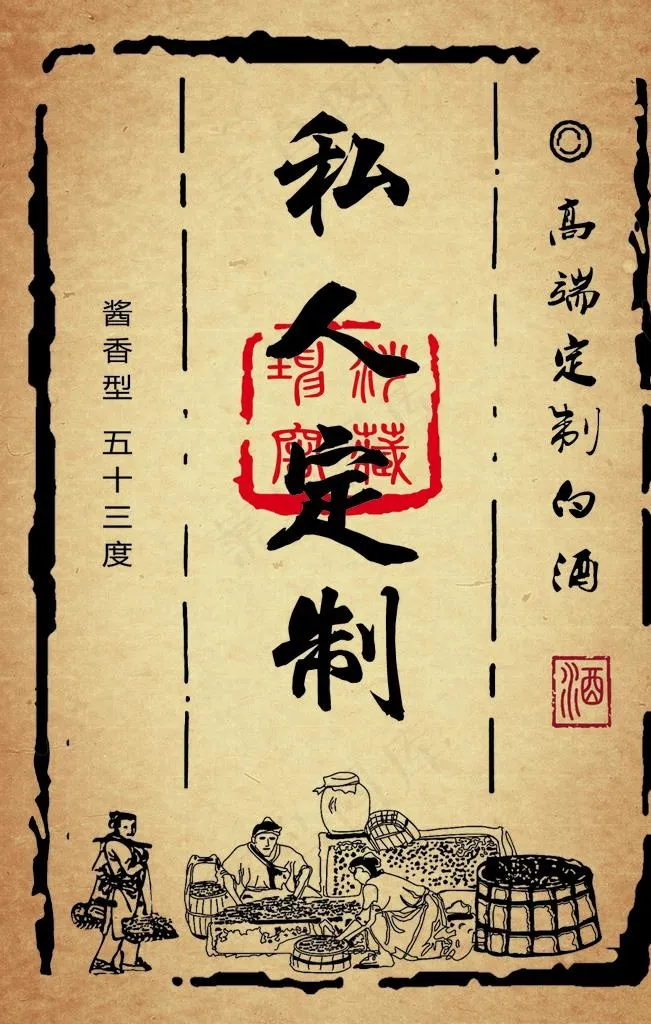 高端定制白酒
酒
私人定制
藏
酱香型 五十三度